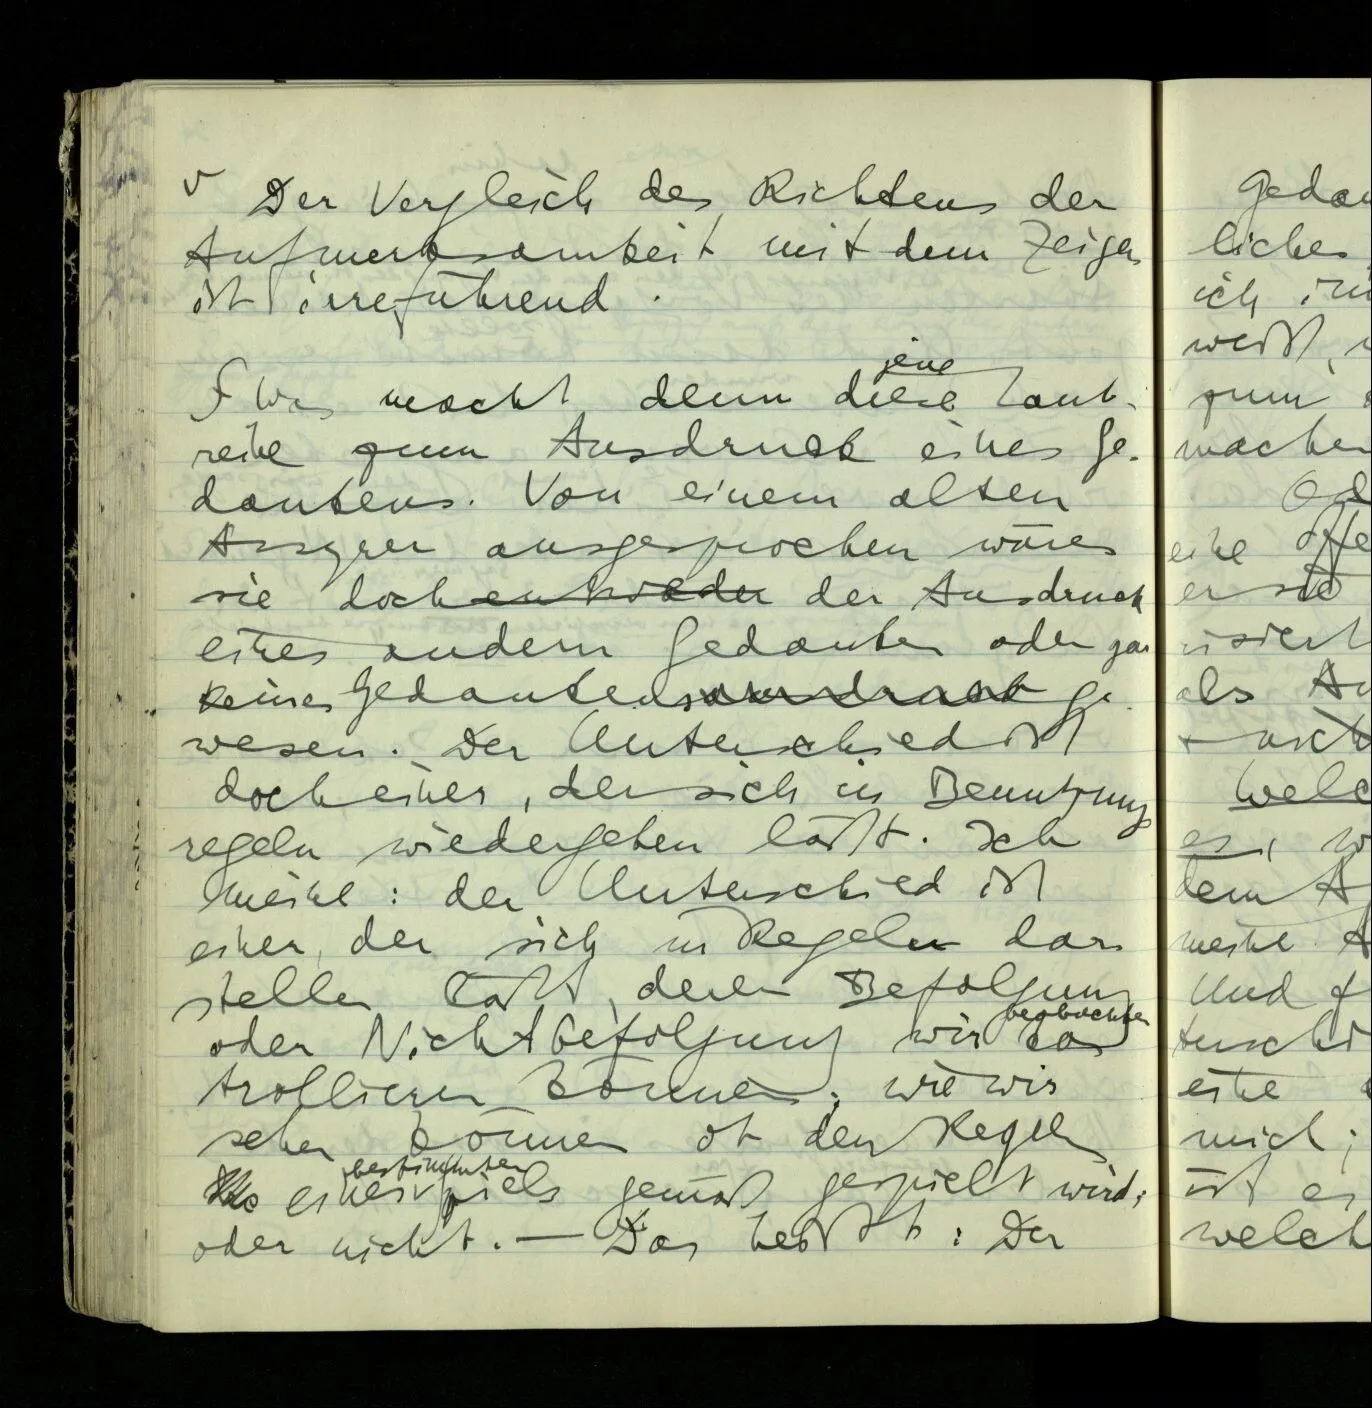 v Der Vergleich des Richtens der
Aufmerksamkeit mit dem Zeigen
ist irreführend.
jene
∫ Was macht denn diese Laut-
reihe zum Ausdruck eines Ge-
dankens. Von einem alten
Assyrer ausgesprochen wäre
sie doch entweder der Ausdruck
eines andern Gedanken oder gar
keines Gedankensausdruck ge-
wesen. Der Unterschied ist
doch einer, der sich in Benutzungs
regeln wiedergeben läßt. Ich
meine: der Unterschied ist
einer, der sich in Regeln dar-
stellen läßt, deren Befolgung
beobachten
oder Nichtbefolgung wir kon
trollieren können; wie wir
sehen können ob den Regeln
bestimmten
eines Spiels gemäß gespielt wird,
oder nicht. — Das heißt: Der
Gedan
liches
ich im
weißt,
zum
machen
Od
eine Offe
er sie
isiert
als Au
Welc
es, w
dem A
meine A
Und f
terschi
eine
mich;
ist es
welch